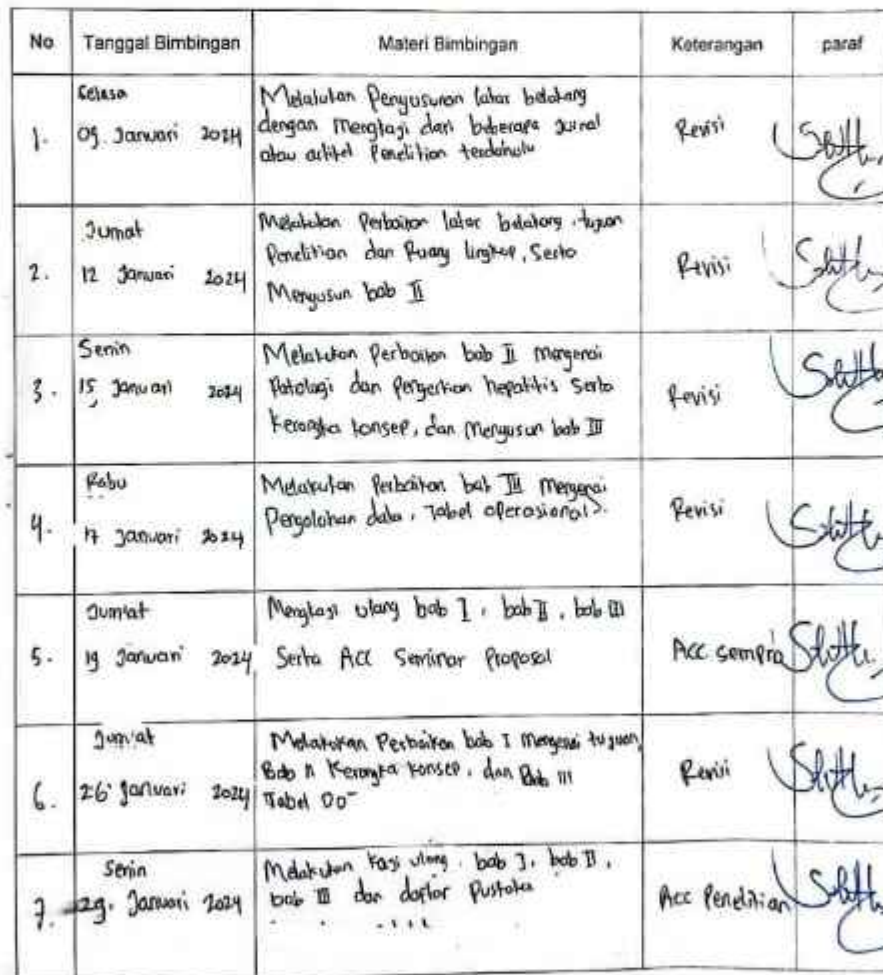 No Tanggal Bimbingan Materi Bimbingan Keterangan paraf
1. Selasa
09. Januari 2024
Melakukan Penyusunan latar belakang
dengan mengkaji dari beberapa jurnal
atau artikel Penelitian terdahulu
Revisi
2. Jumat
12 Januari 2024
Melakukan Perbaikan latar belakang, tujuan
Penelitian dan Ruang lingkup, Serta
Mengusun bab II
Revisi
3. Senin
15 Januari 2024
Melakukan Perbaikan bab II mengenai
Patologi dan Pengertian hepatitis Serta
Kerangka konsep, dan Menyusun bab III
Revisi
4. Rabu
17 Januari 2024
Melakukan Perbaikan bab III mengenai
Pengolahan data, Tabel operasional.
Revisi
5. Jum'at
19 Januari 2024
Mengkaji ulang bab I, bab II, bab III
Serta Acc Seminar Proposal
Acc sempro
6. Jum'at
26 Januari 2024
Melakukan Perbaikan bab I mengenai tujuan,
Bab II Kerangka konsep, dan Bab III
Tabel DO
Revisi
7. Senin
29. Januari 2024
Melakukan kaji ulang. bab I, bab II,
bab III dan daftar Pustaka
Acc Penelitian